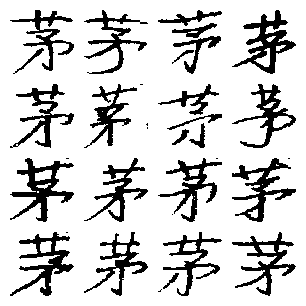 茅茅茅茅
茅茅茅茅
茅茅茅茅
茅茅茅茅